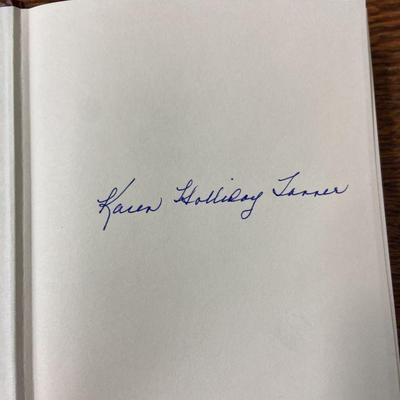 Karen Holliday Tanner